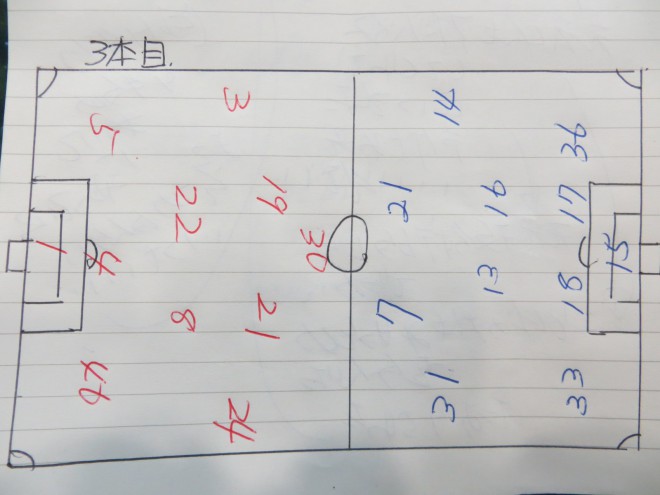 3本目.
3
14
5
36
19
22
21
16
17
30
1
4
15
13
18
21
8
7
46
24
31
33